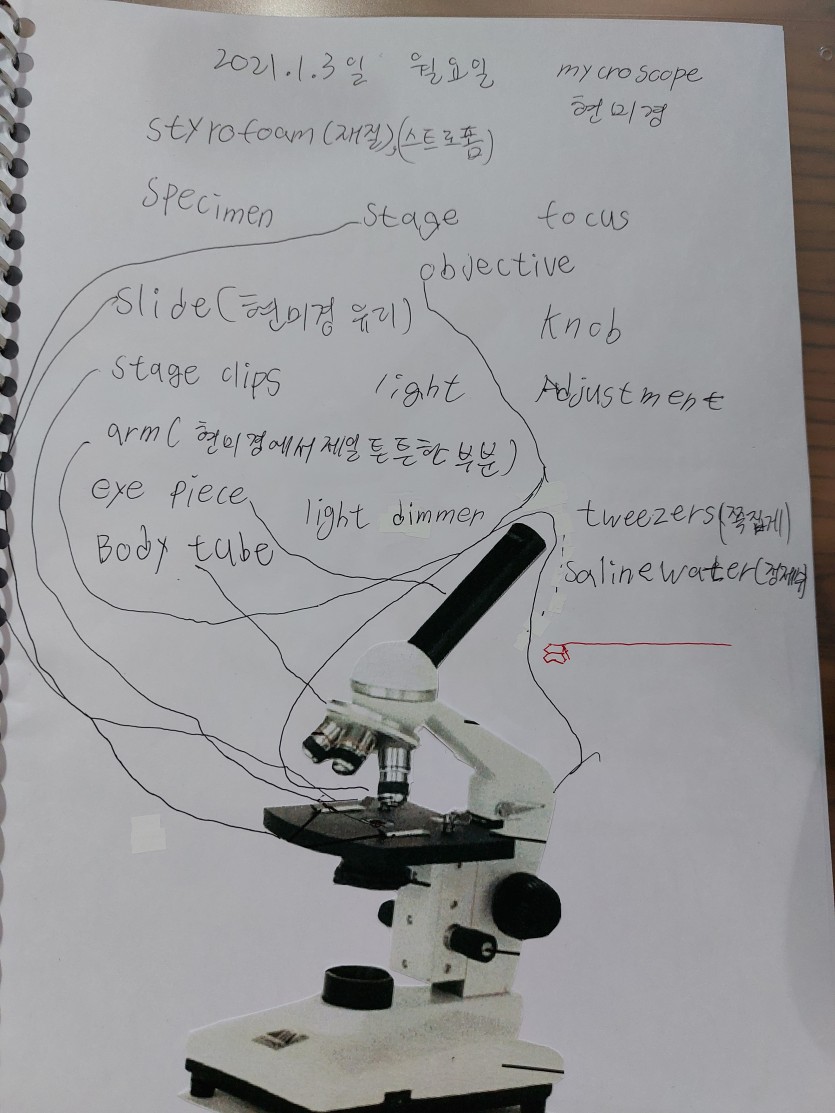 2021.1.3일 월요일 mycroscope
현미경
styrofoam(재질),(스트로폼)
specimen stage focus
objective
slide(현미경 유리)
knob
stage clips light Adjustment
arm(현미경에서 제일 튼튼한 부분)
eye piece light dimmer tweezers(쪽집게)
Body tube saline water(정제수)